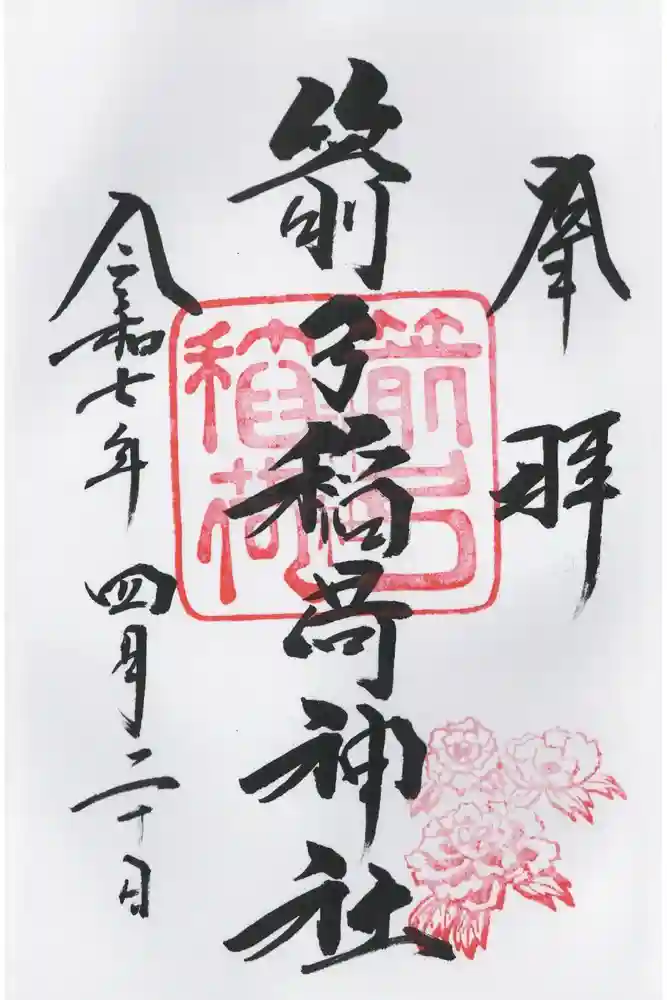 奉拝
箭弓稲荷神社
箭弓
稲荷
令和七年四月二十日